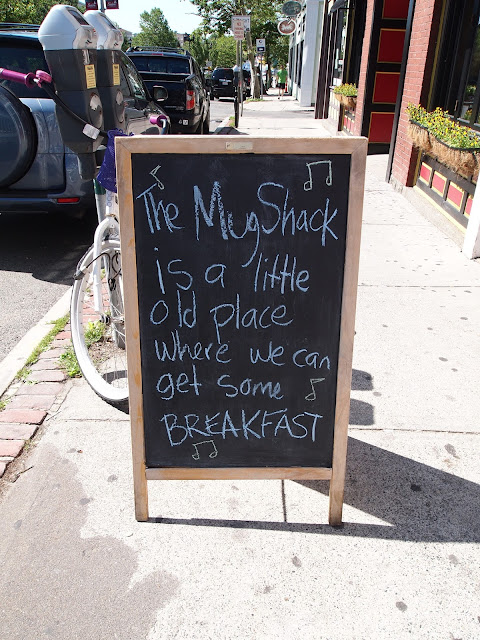 The MugShack
is a little
old place
where we can
get some
BREAKFAST